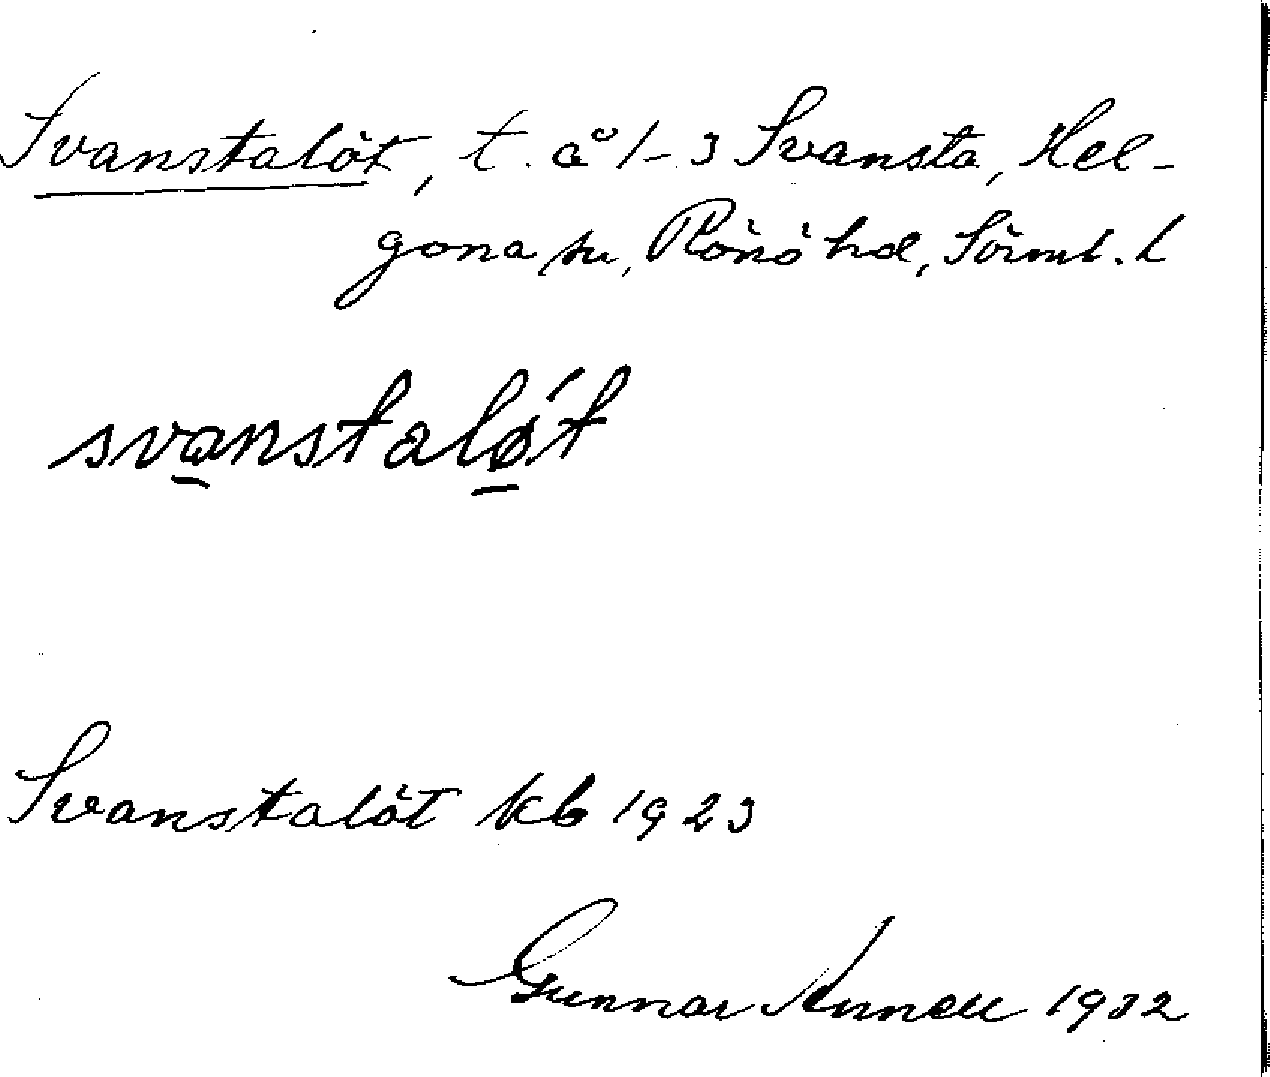 Svanstalöt, t. å 1-3 Svansta, Hel-
gona sn, Rönö hd, Sörml. l
svanstaløt
Svanstalöt kb 1923
Gunnar Annell 1932